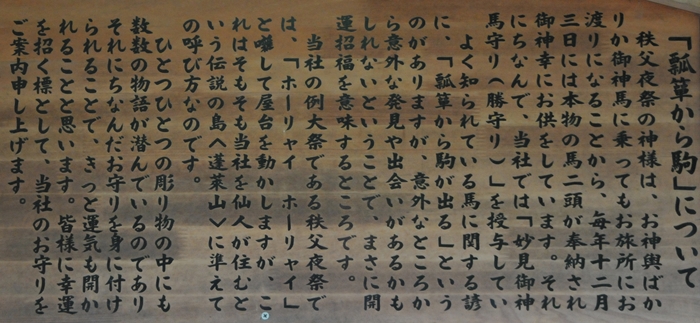 「瓢箪から駒」について
秩父夜祭の神様は、お神輿ばか
りか御神馬に乗ってもお旅所にお
渡りになることから、毎年十二月
三日には本物の馬二頭が奉納され
御神幸にお供をしています。それ
にちなんで、当社では「妙見御神
馬守り〈勝守り〉」を授与してい
よく知られている馬に関する諺
に、「瓢箪から駒が出る」という
のがありますが、意外なところか
ら意外な発見や出会いがあるかも
しれないということで、まさに開
運招福を意味するところです。
当社の例大祭である秩父夜祭で
は、「ホーリャイ ホーリャイ」
と囃して屋台を動かしますが、こ
れはそもそも当社を仙人が住むと
いう伝説の島〈蓬莱山〉に準えて
の呼び方なのです。
ひとつひとつの彫り物の中にも
数数の物語が潜んでいるのであり
それにちなんだお守りを身に付け
られることで、きっと運気も開か
れることと思います。皆様に幸運
を招く標として、当社のお守りを
ご案内申し上げます。